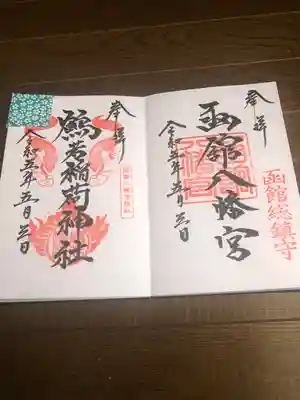 奉拝
函館八幡宮
令和五年五月三日
函館総鎮守
奉拝
鶴若稲荷神社
令和五年五月三日